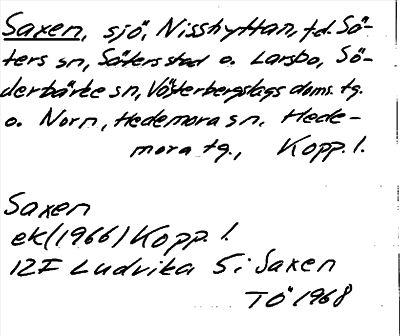 Saxen, sjö, Nisshyttan, f.d. Sä-
ters sn, Säters stad o. Larsbo, Sö-
derbärke sn, Västerbergslags doms. tg.
o. Norn, Hedemora sn, Hede-
mora tg., Kopp. l.
Saxen
ek (1966) Kopp. l.
12F Ludvika 5i Saxen
TÖ 1968